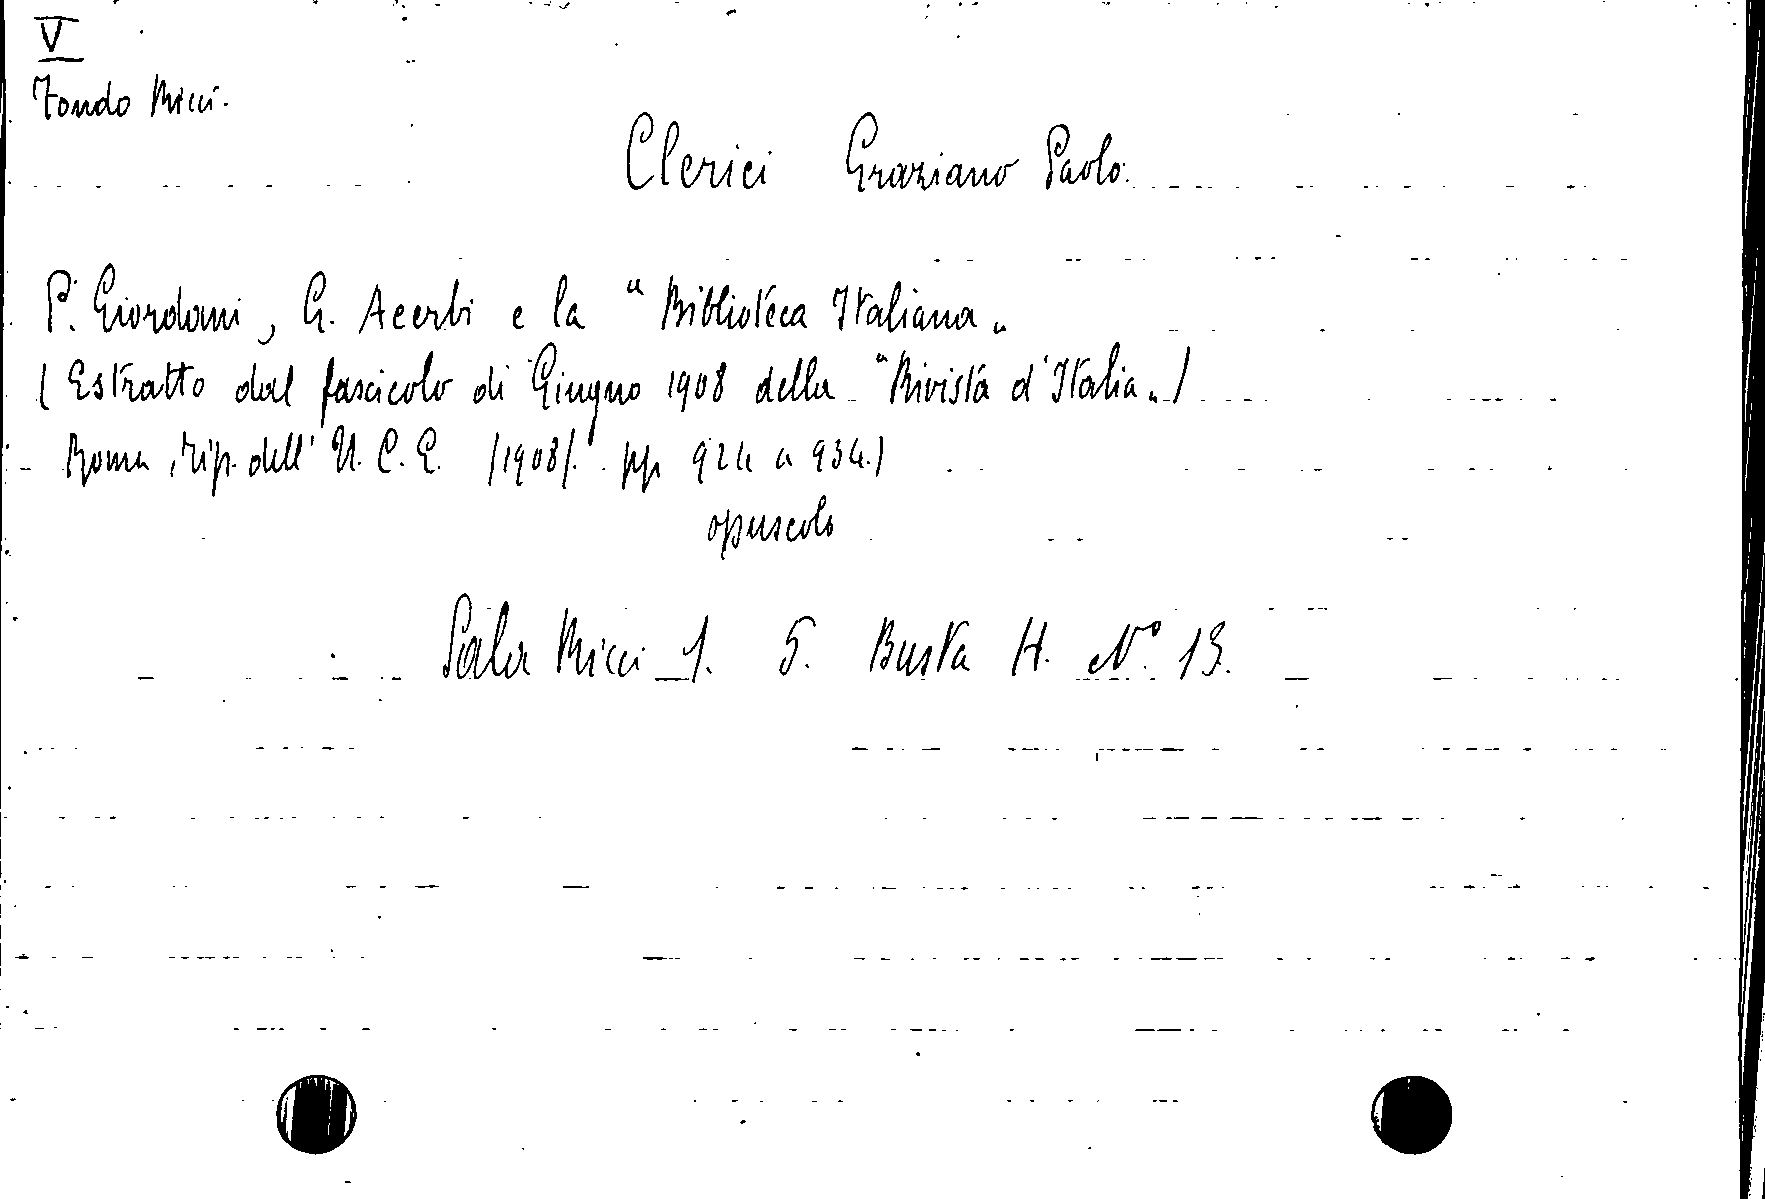 V
Fondo Ricci.
Clerici Graziano Paolo.
P. Giordani, G. Acerbi e la "Biblioteca Italiana„
(Estratto dal fascicolo di Giugno 1908 della "Rivista d'Italia„)
Roma, tip. dell' U. C. E. (1908). pp 924 a 934.)
opuscolo
Sala Ricci 1. 5. Busta H. N.° 13.